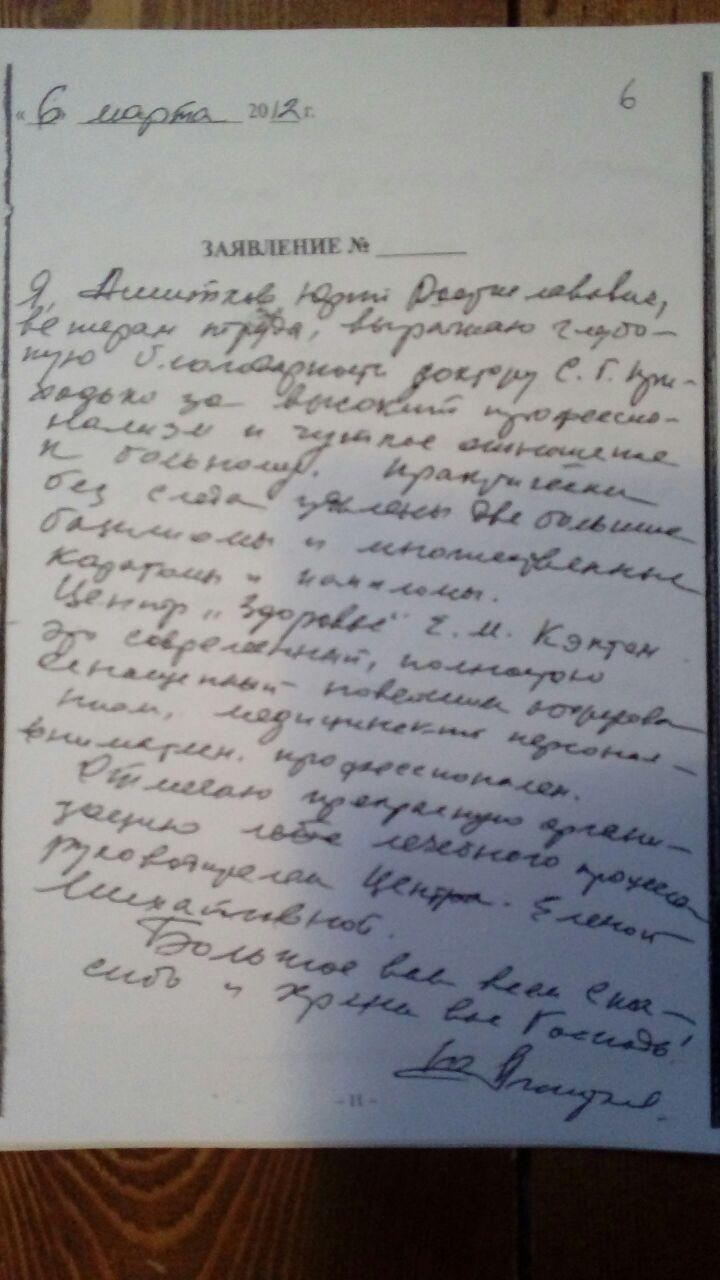 « 6 » марта 2012 г.
6
ЗАЯВЛЕНИЕ № ______
Я, Юрий Ростиславович,
ветеран труда, выражаю глубо-
кую благодарность доктору С. Г. При-
ходько за высокий профессио-
нализм и чуткое отношение
к больному. Практически
без следа удалены две большие
базилиомы и множественные
и папиломы.
Центр „Здоровье" Е. М. Кэптен
это современный, полностью
оснащенный новейшим оборудова-
нием, медицинский персонал –
внимателен. профессионален.
Отмечаю прекрасную органи-
зацию лечебного процесса
руководителем Центра. Еленой
Михайловной.
Большое вам всем спа-
сибо и храни вас Господь!
- 11 -